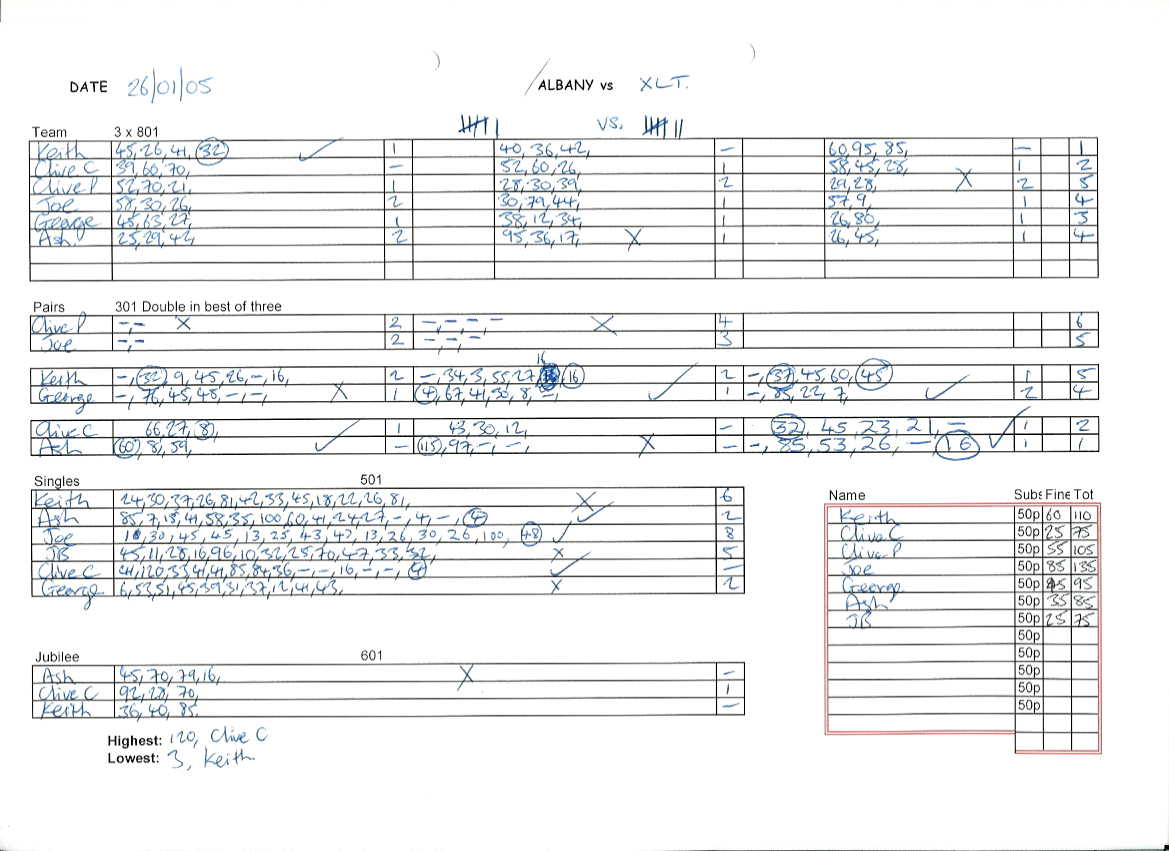 DATE 26/01/05 ALBANY vs XLT.
VS.
Team 3 x 801
Keith 45, 26, 41, 32 1 40, 36, 42, – 60, 95, 85, – 1
Clive C 39, 60, 70, – 52, 60, 26, 1 58, 45, 28, 1 2
Clive P 52, 70, 21, 1 28, 30, 39, 2 29, 28, X 2 5
Joe 58, 30, 26, 2 30, 79, 44, 1 57, 9, 1 4
George 45, 63, 27, 1 38, 12, 34, 1 26, 80, 1 3
Ash 25, 29, 42, 2 95, 36, 17, X 1 26, 45, 1 4
Pairs 301 Double in best of three
Clive P –, – X 2 –, –, –, – X 4 6
Joe –, – 2 –, –, –, 3 5
16
Keith –, 32, 9, 45, 26, –, 16, 2 –, 34, 3, 55, 27, 16 2 –, 37, 45, 60, 45 1 5
George –, 76, 45, 48, –, –, X 1 4, 67, 41, 30, 8, –, 1 –, 85, 22, 7, 2 4
Clive C 66, 27, 8, 1 43, 30, 12, – 32, 45, 23, 21, – 1 2
Ash 60, 8, 59, – 115, 97, –, –, X – –, 85, 53, 26, – 16 1 1
Singles 501
Keith 24, 30, 37, 26, 81, 42, 33, 45, 18, 22, 26, 81, X 6
Ash 85, 7, 15, 41, 58, 35, 100, 60, 41, 24, 27, –, 4, –, 4 2
Joe 10, 30, 45, 45, 13, 25, 43, 47, 13, 26, 30, 26, 100, 48 8
JB 45, 11, 28, 16, 96, 10, 32, 25, 70, 47, 33, 32, X 5
Clive C 41, 120, 33, 41, 41, 85, 84, 36, –, –, 16, –, –, 4 –
George 6, 53, 51, 45, 39, 31, 37, 12, 41, 43, X 2
Name Subs Fine Tot
Keith 50p 60 110
Clive C 50p 25 75
Clive P 50p 55 105
Joe 50p 85 135
George 50p 45 95
Ash 50p 35 85
JB 50p 25 75
50p
50p
50p
50p
50p
Jubilee 601
Ash 45, 70, 79, 16, X –
Clive C 92, 28, 70, 1
Keith 36, 40, 85. –
Highest: 120, Clive C
Lowest: 3, Keith